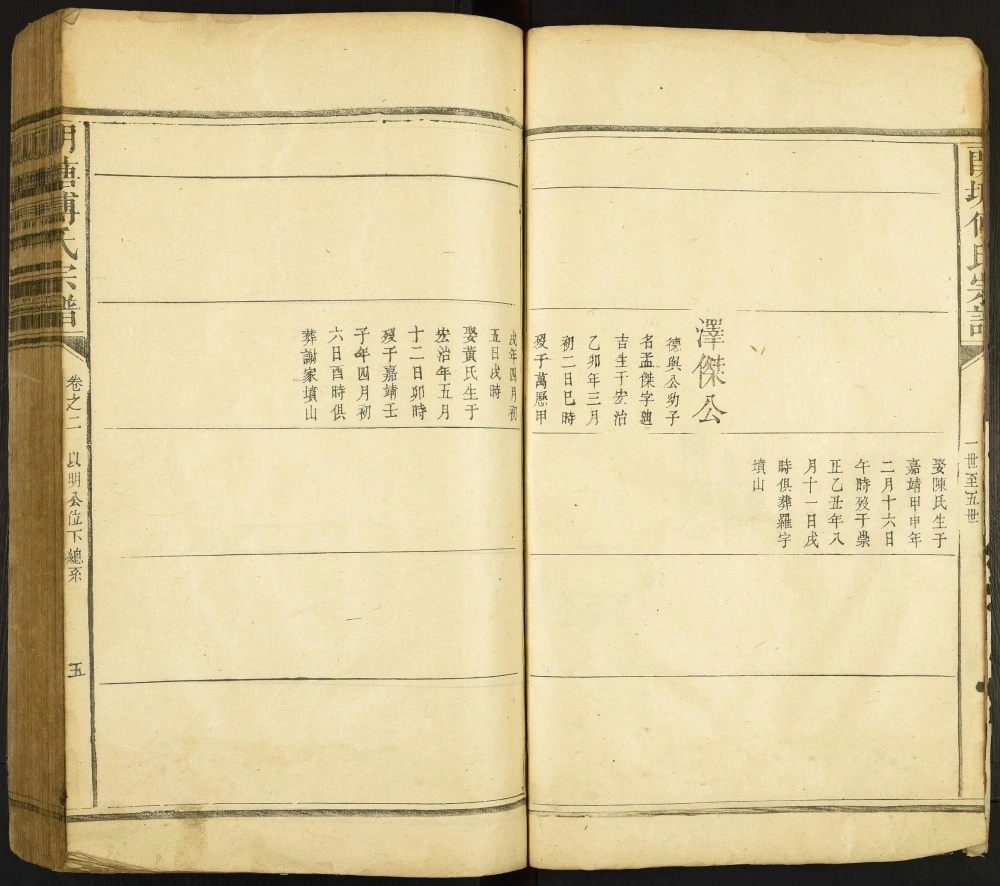 氏宗譜
一世至五世
娶陳氏生于
嘉靖甲申年
二月十六日
午時殁于崇
正乙丑年八
月十一日戌
時俱葬羅字
墳山
澤傑公
德與公幼子
名孟傑字
吉生于宏治
乙卯年三月
初二日巳時
殁于萬歷甲
戌年四月初
五日戌時
娶黃氏生于
宏治年五月
十二日卯時
殁于嘉靖壬
子年四月初
六日酉時俱
葬謝家墳山
塘傅氏宗譜
卷之二
以明公位下總系
五